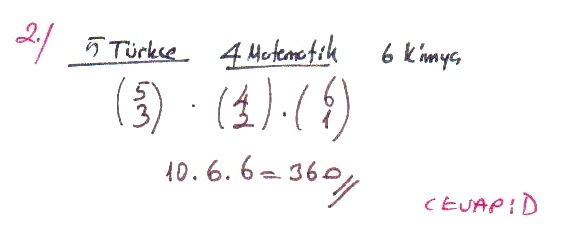 2./ 5 Türkçe 4 Matematik 6 Kimya
(5 3) . (4 2) . (6 1)
10.6.6 = 360
CEVAP: D